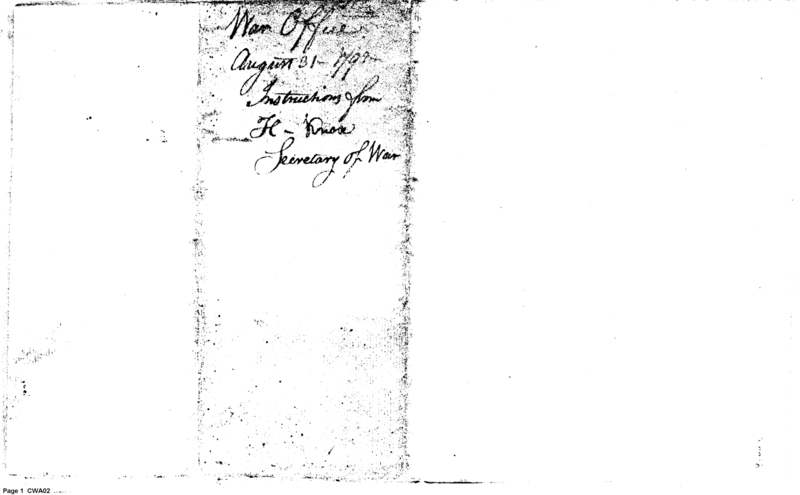 War Office
August 31 - 179
Instructions from
H - Knox
Secretary of War
Page 1 CWA02